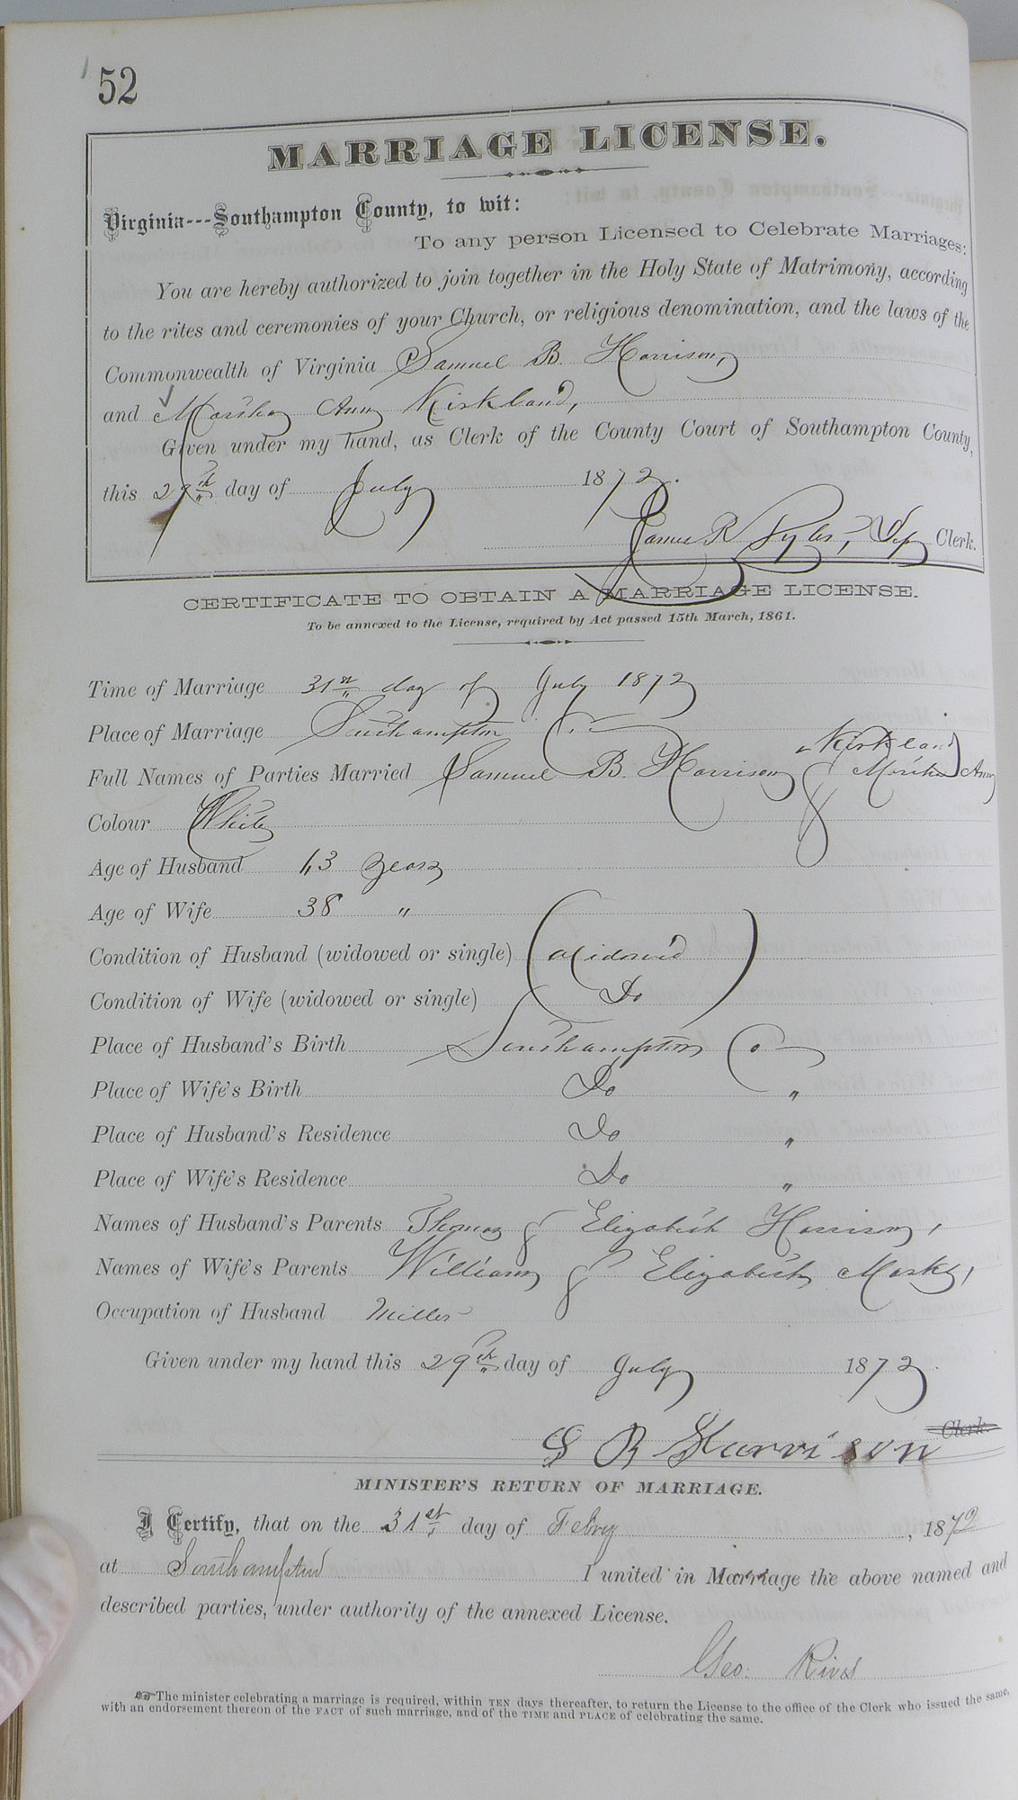 52
MARRIAGE LICENSE.
Virginia---Southampton County, to wit:
To any person Licensed to Celebrate Marriages:
You are hereby authorized to join together in the Holy State of Matrimony, according
to the rites and ceremonies of your Church, or religious denomination, and the laws of the
Commonwealth of Virginia Samuel B. Harrison,
and Martha Ann Kirkland,
Given under my hand, as Clerk of the County Court of Southampton County,
this 29th day of July 1872.
James R Tyler, Dep Clerk.
CERTIFICATE TO OBTAIN A MARRIAGE LICENSE.
To be annexed to the License, required by Act passed 15th March, 1861.
Time of Marriage 31st day of July 1872
Place of Marriage Southampton Co
Kirkland
Full Names of Parties Married Samuel B. Harrison & Martha Ann
Colour White
Age of Husband 43 years
Age of Wife 38 "
Condition of Husband (widowed or single) Widow'd
Condition of Wife (widowed or single) Do
Place of Husband's Birth Southampton Co
Place of Wife's Birth Do "
Place of Husband's Residence Do "
Place of Wife's Residence Do "
Names of Husband's Parents Thomas & Elizabeth Harrison,
Names of Wife's Parents William & Elizabeth
Occupation of Husband Miller
Given under my hand this 29th day of July 1872
S B Harrison Clerk.
MINISTER'S RETURN OF MARRIAGE.
I Certify, that on the 31st day of Febry, 1872
at Southampton I united in Marriage the above named and
described parties, under authority of the annexed License.
Geo. Rives
The minister celebrating a marriage is required, within TEN days thereafter, to return the License to the office of the Clerk who issued the same,
with an endorsement thereon of the FACT of such marriage, and of the TIME and PLACE of celebrating the same.